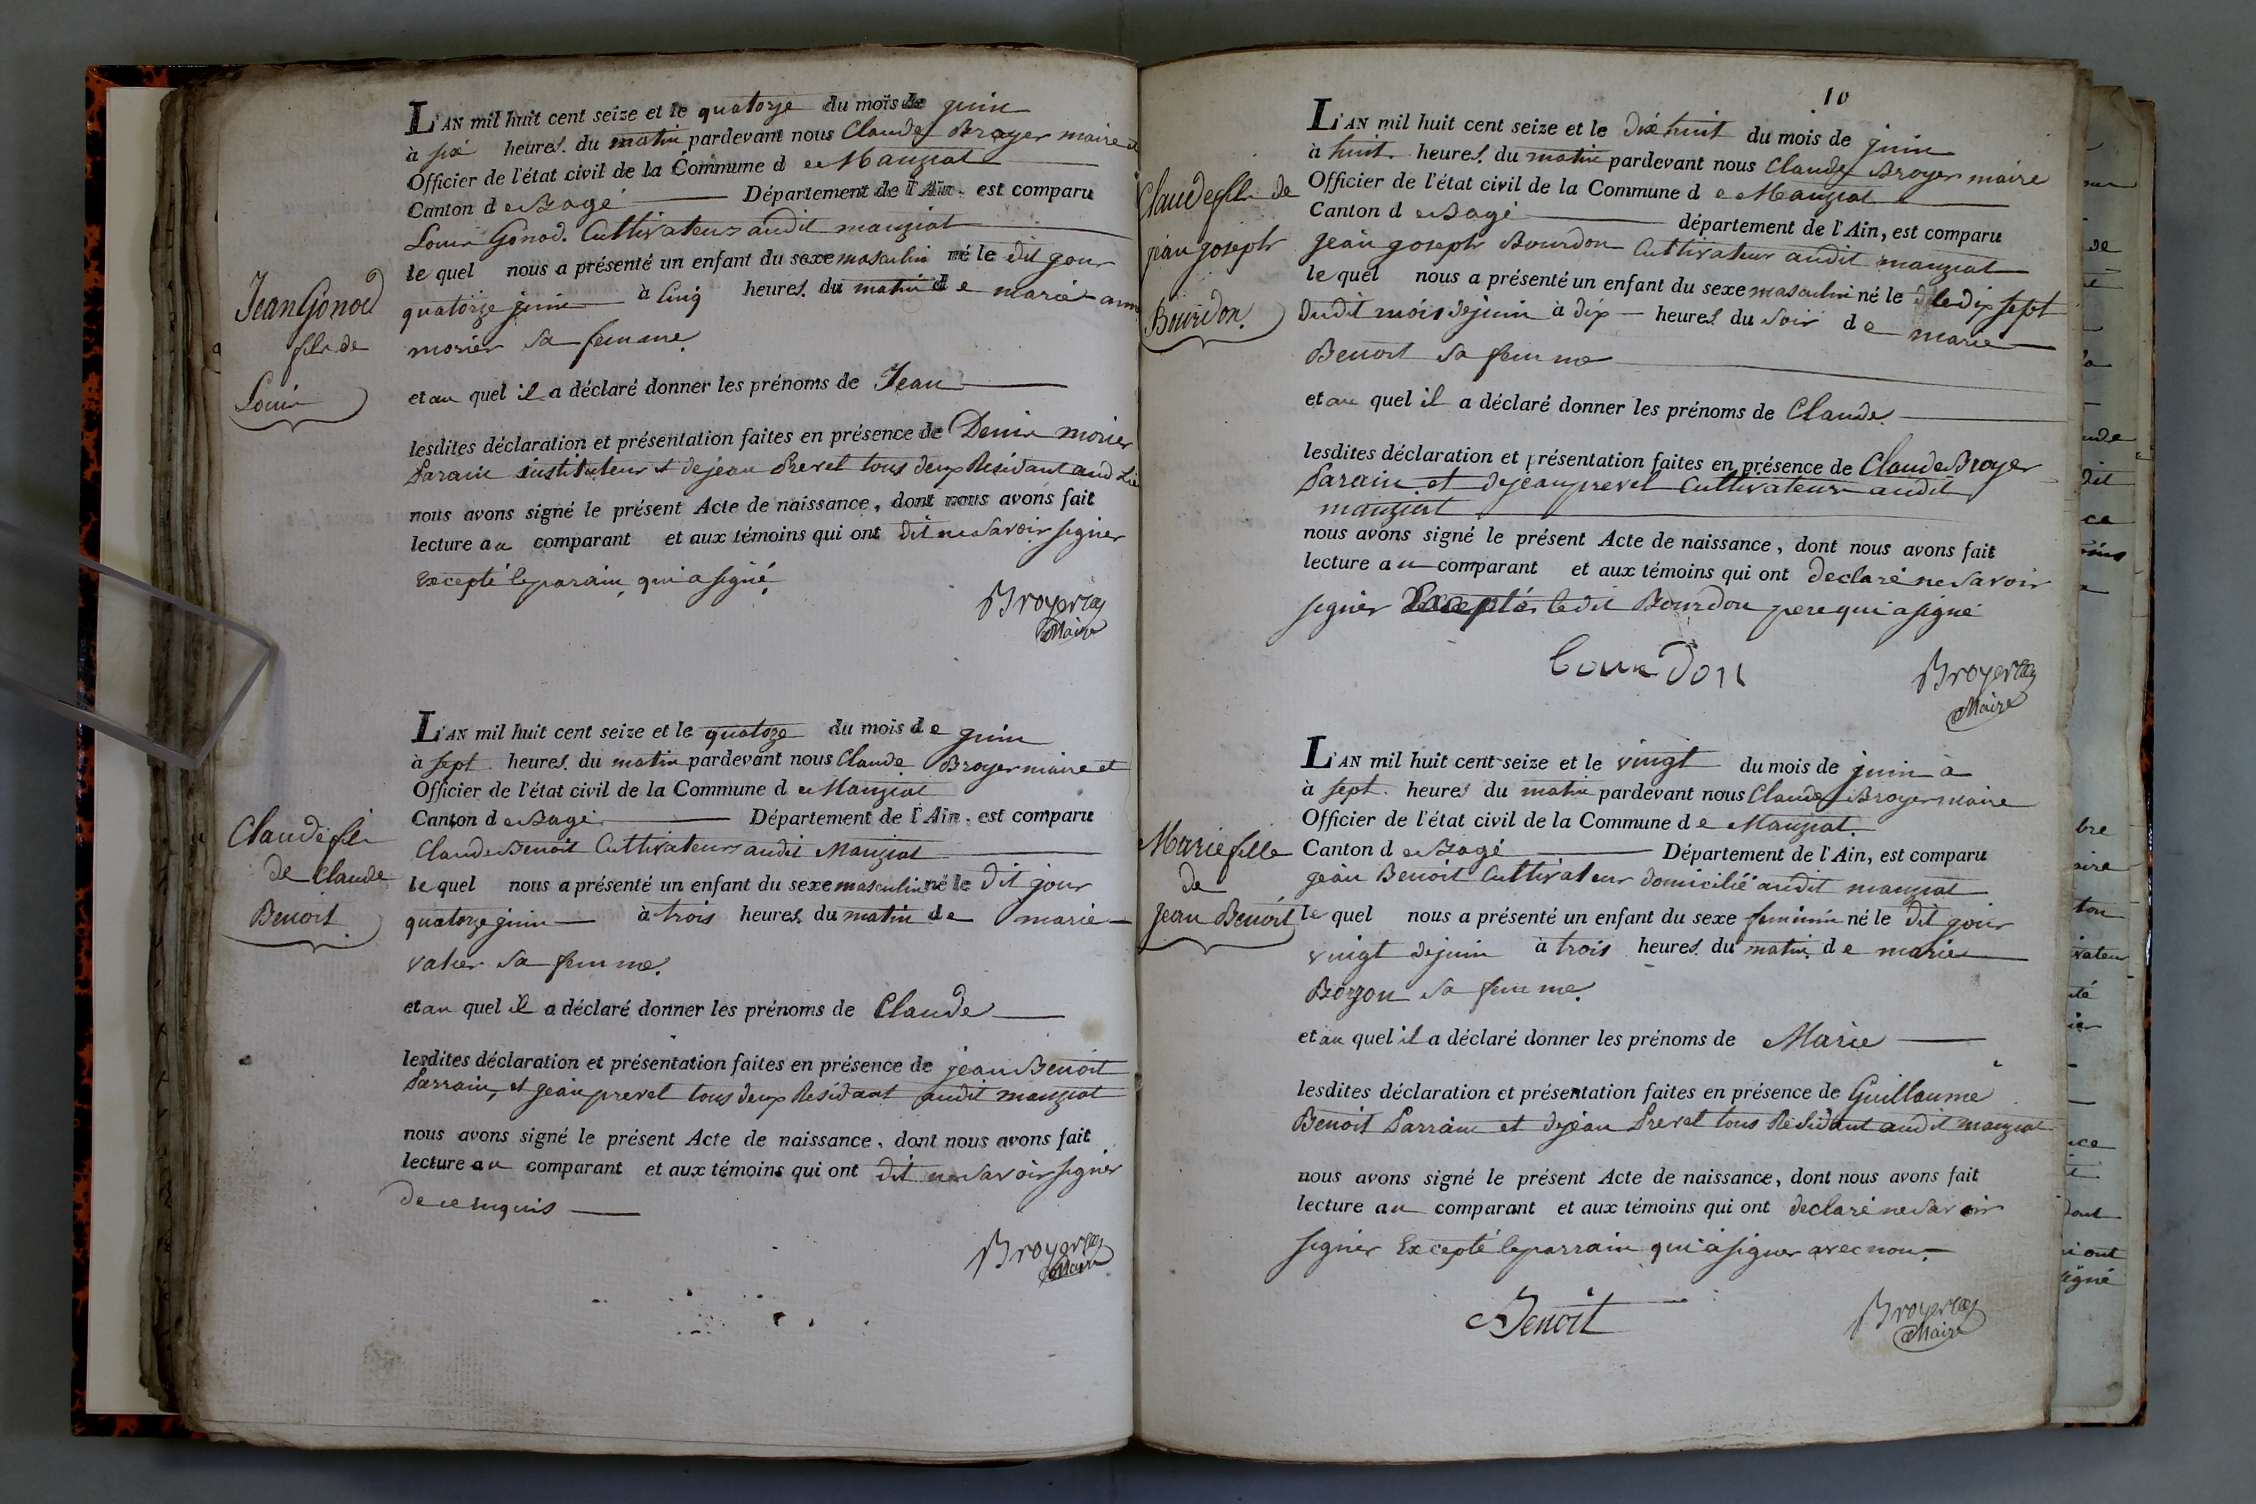 Jean Gonod
fils de
Louis
L'AN mil huit cent seize et le quatorze du mois de juin
à six heures du matin pardevant nous Claude Broyer maire et
Officier de l'état civil de la Commune de Manziat
Canton de Bagé Département de l'Ain, est comparu
Louis Gonod. Cultivateur audit manziat
le quel nous a présenté un enfant du sexe masculin né le dit jour
quatorze juin à cinq heures du matin de marie anne
morier sa femme.
et au quel il a déclaré donner les prénoms de Jean
lesdites déclaration et présentation faites en présence de Denis morier
Parain instituteur et de jean Prevel tous deux Residant aud Lieu
nous avons signé le présent Acte de naissance, dont nous avons fait
lecture au comparant et aux témoins qui ont dit ne Savoir signer
Excepté le parain, qui a signé.
Broyer
Maire
Claude fils
de Claude
Benoit
L'AN mil huit cent seize et le quatoze du mois de juin
à sept heures du matin pardevant nous Claude Broyer maire et
Officier de l'état civil de la Commune de Manziat
Canton de Bagé Département de l'Ain, est comparu
Claude Benoit Cultivateur audit Manziat
le quel nous a présenté un enfant du sexe masculin né le dit jour
quatorze juin à trois heures du matin de marie
vaher sa femme.
et au quel il a déclaré donner les prénoms de Claude
lesdites déclaration et présentation faites en présence de jean Benoit
Parrain, et jean prevel tous deux Residant audit manziat
nous avons signé le présent Acte de naissance, dont nous avons fait
lecture au comparant et aux témoins qui ont dit ne Savoir signer
de ce enquis
Broyer
Maire
10
Claude fils de
jean joseph
Bourdon.
L'AN mil huit cent seize et le dix huit du mois de juin
à huit heures du matin pardevant nous Claude Broyer maire
Officier de l'état civil de la Commune de Manziat
Canton de Bagé département de l'Ain, est comparu
jean joseph Bourdon Cultivateur audit manziat
le quel nous a présenté un enfant du sexe masculin né le dix sept
dudit mois de juin à dix heures du soir de marie
Benoit sa femme
et au quel il a déclaré donner les prénoms de Claude.
lesdites déclaration et présentation faites en présence de Claude Broyer
Parain et de jean prevel Cultivateur audit
manziat
nous avons signé le présent Acte de naissance, dont nous avons fait
lecture au comparant et aux témoins qui ont declaré ne Savoir
signer Excepté ledit Bourdon pere qui a signé
bourdon
Broyer
Maire
Marie fille
de
jean Benoit
L'AN mil huit cent seize et le vingt du mois de juin à
à sept heures du matin pardevant nous Claude Broyer maire
Officier de l'état civil de la Commune de Manziat
Canton de Bagé Département de l'Ain, est comparu
jean Benoit Cultivateur domicilié audit manziat
le quel nous a présenté un enfant du sexe feminin né le dit jour
vingt de juin à trois heures du matin de marie
Bozon sa femme.
et au quel il a déclaré donner les prénoms de Marie
lesdites déclaration et présentation faites en présence de Guillaume
Benoit Parrain et de jean Prevel tous Residant audit manziat
nous avons signé le présent Acte de naissance, dont nous avons fait
lecture au comparant et aux témoins qui ont declaré ne Savoir
signer Excepté le parrain qui a signer avec nous
Benoit
Broyer
Maire